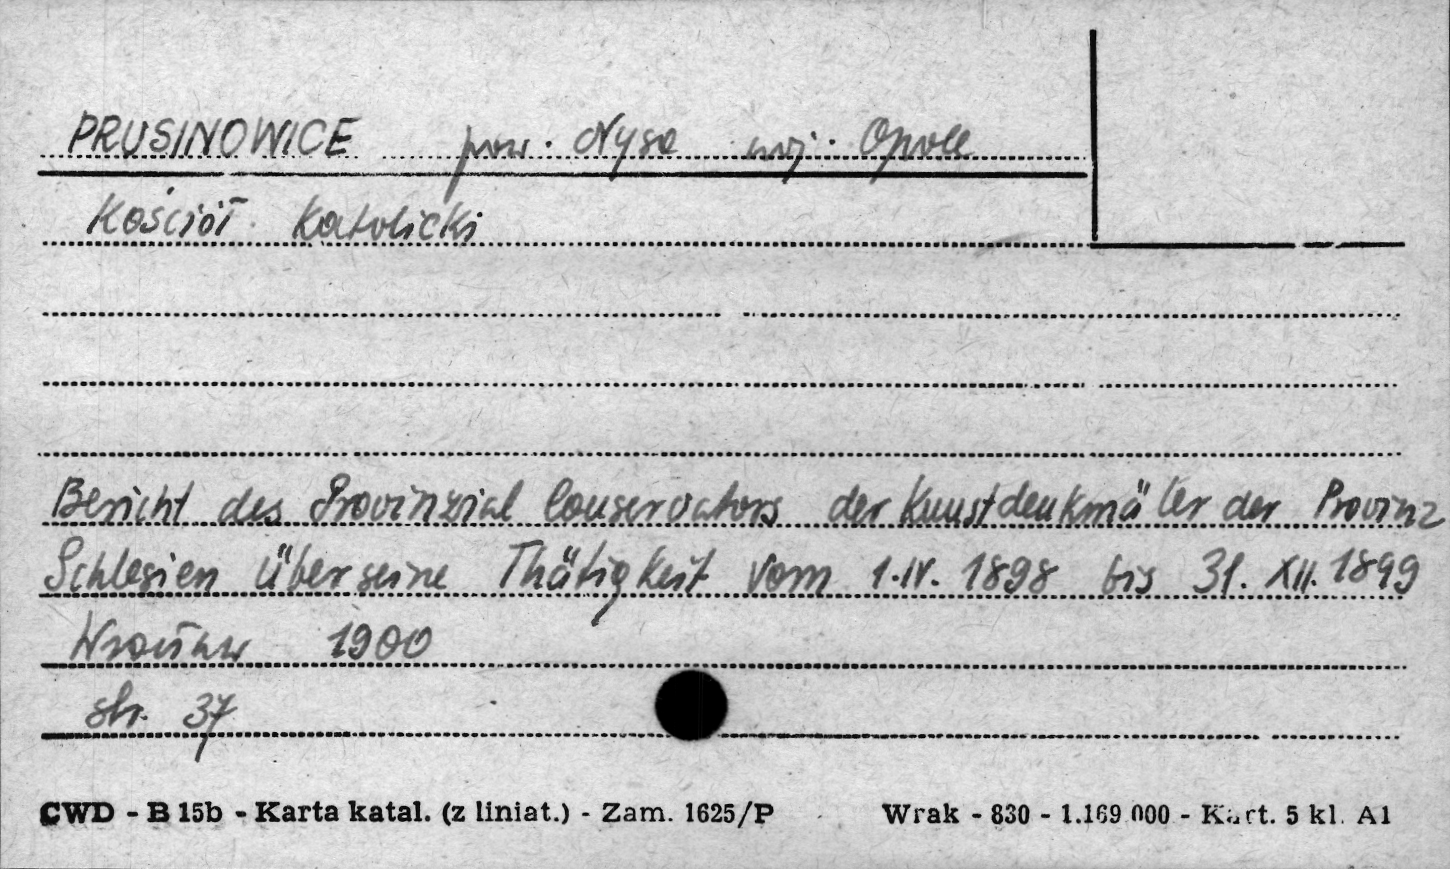 PRUSINOWICE pow. Nysa woj. Opole
Kościół Katolicki
Bericht des Provinzial Conservators der Kunstdenkmäler der Provinz
Schlesien über seine Thätigkeit vom 1.IV. 1898 bis 31. XII. 1899
Wrocław 1900
str. 37
CWD - B 15b - Karta katal. (z liniat.) - Zam. 1625/P Wrak - 830 - 1.169 000 - Kart. 5 kl. A1